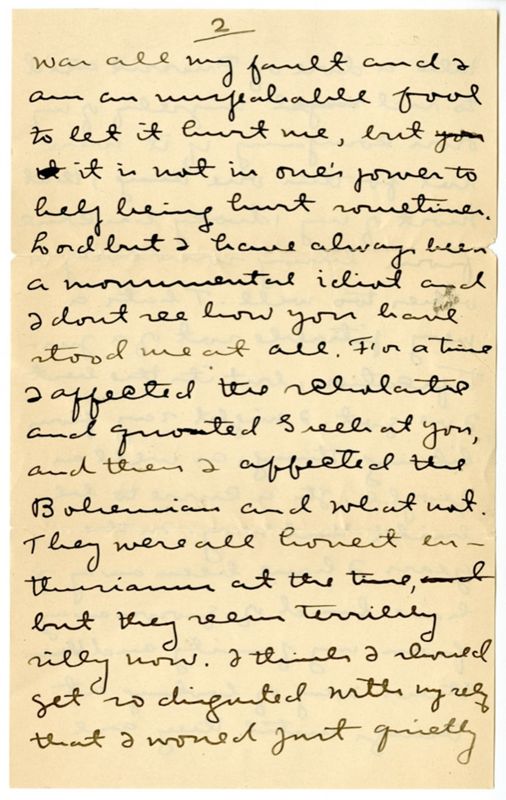 2
was all my fault and I
am an unspeakable fool
to let it hurt me, but you
it it is not in one's power to
help being hurt sometimes.
Lord but I have always been
a monumental idiot and
I dont see how you have
stood me at all. For a time
I affected the scholastic
and quoted Greek at you,
and then I affected the
Bohemian and what not.
They were all honest en-
thusiasms at the time, and
but they seem terribly
silly now. I think I should
get so disgusted with myself
that I would just quietly